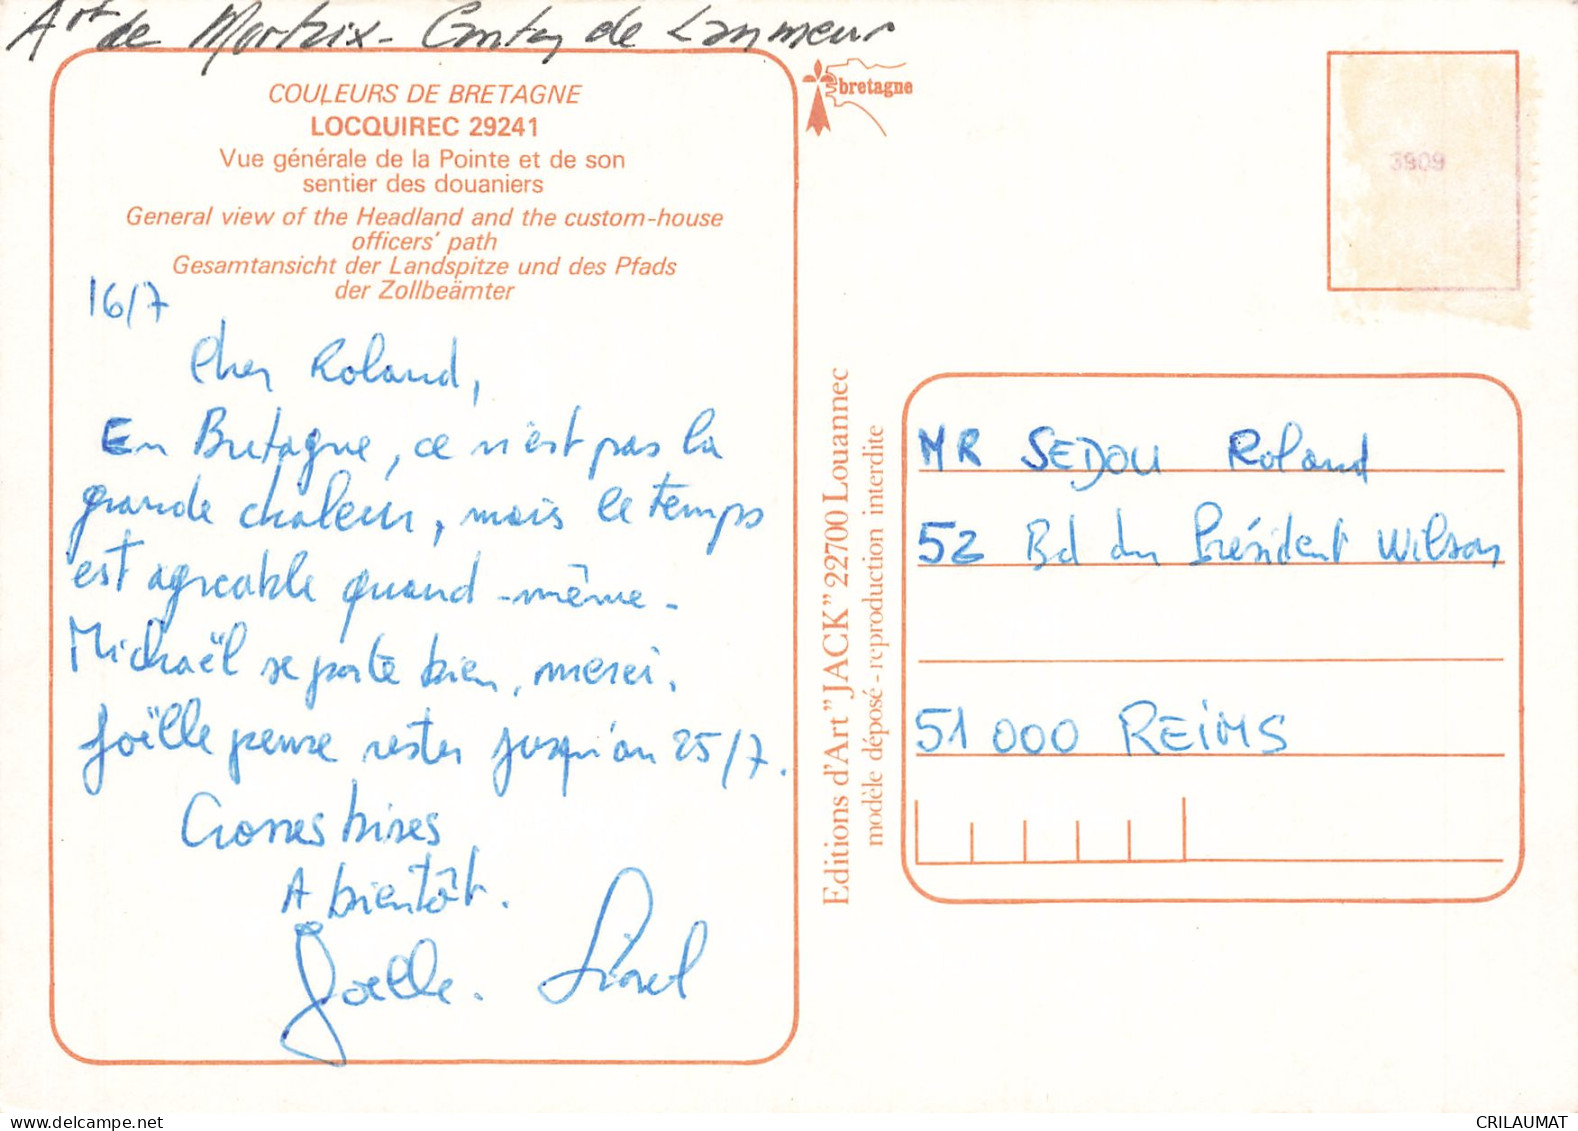 Art de Morlaix - Canton de Lanmeur
COULEURS DE BRETAGNE
LOCQUIREC 29241
Vue générale de la Pointe et de son
sentier des douaniers
General view of the Headland and the custom-house
officers' path
Gesamtansicht der Landspitze und des Pfads
der Zollbeämter
16/7
Cher Roland,
En Bretagne, ce n'est pas la
grande chaleur, mais le temps
est agreable quand-même-
Michaël se porte bien, merci.
Joëlle pense rester jusqu'au 25/7.
Grosses bises
A bientôt.
Joëlle. Lionel
bretagne
3909
Editions d'Art "JACK" 22700 Louannec
modèle déposé - reproduction interdite
MR SEDOU Roland
52 Bd du Président Wilson
51 000 REIMS
delcampe.net
CRILAUMAT